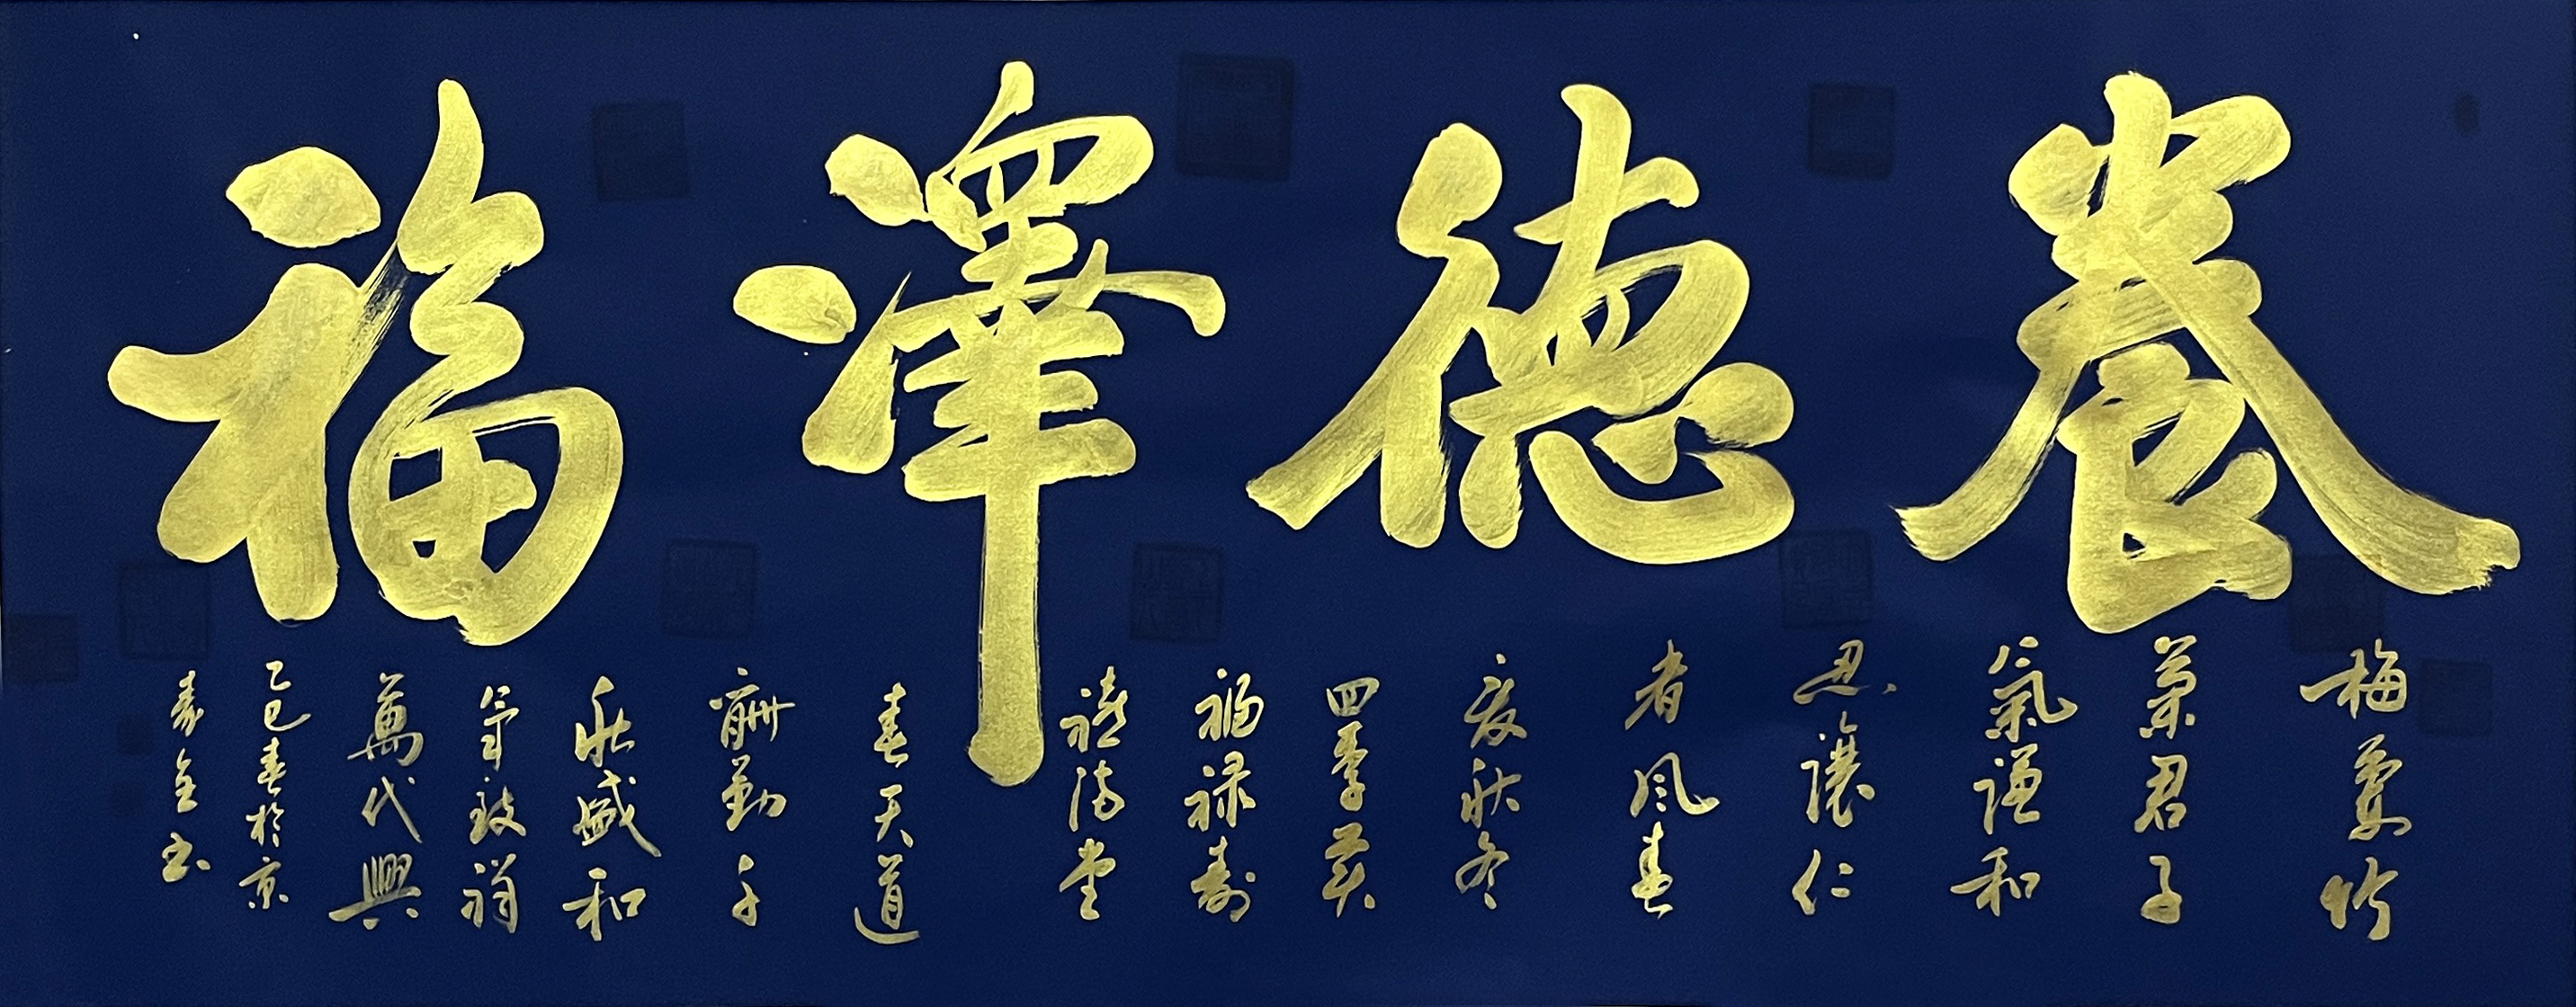 養德澤福
梅蘭竹
菊君子
氣謙和
忍讓仁
者風春
夏秋冬
四季美
福祿壽
禧滿堂
春天道
酬勤千
秋盛和
氣致祥
萬代興
乙巳春於京